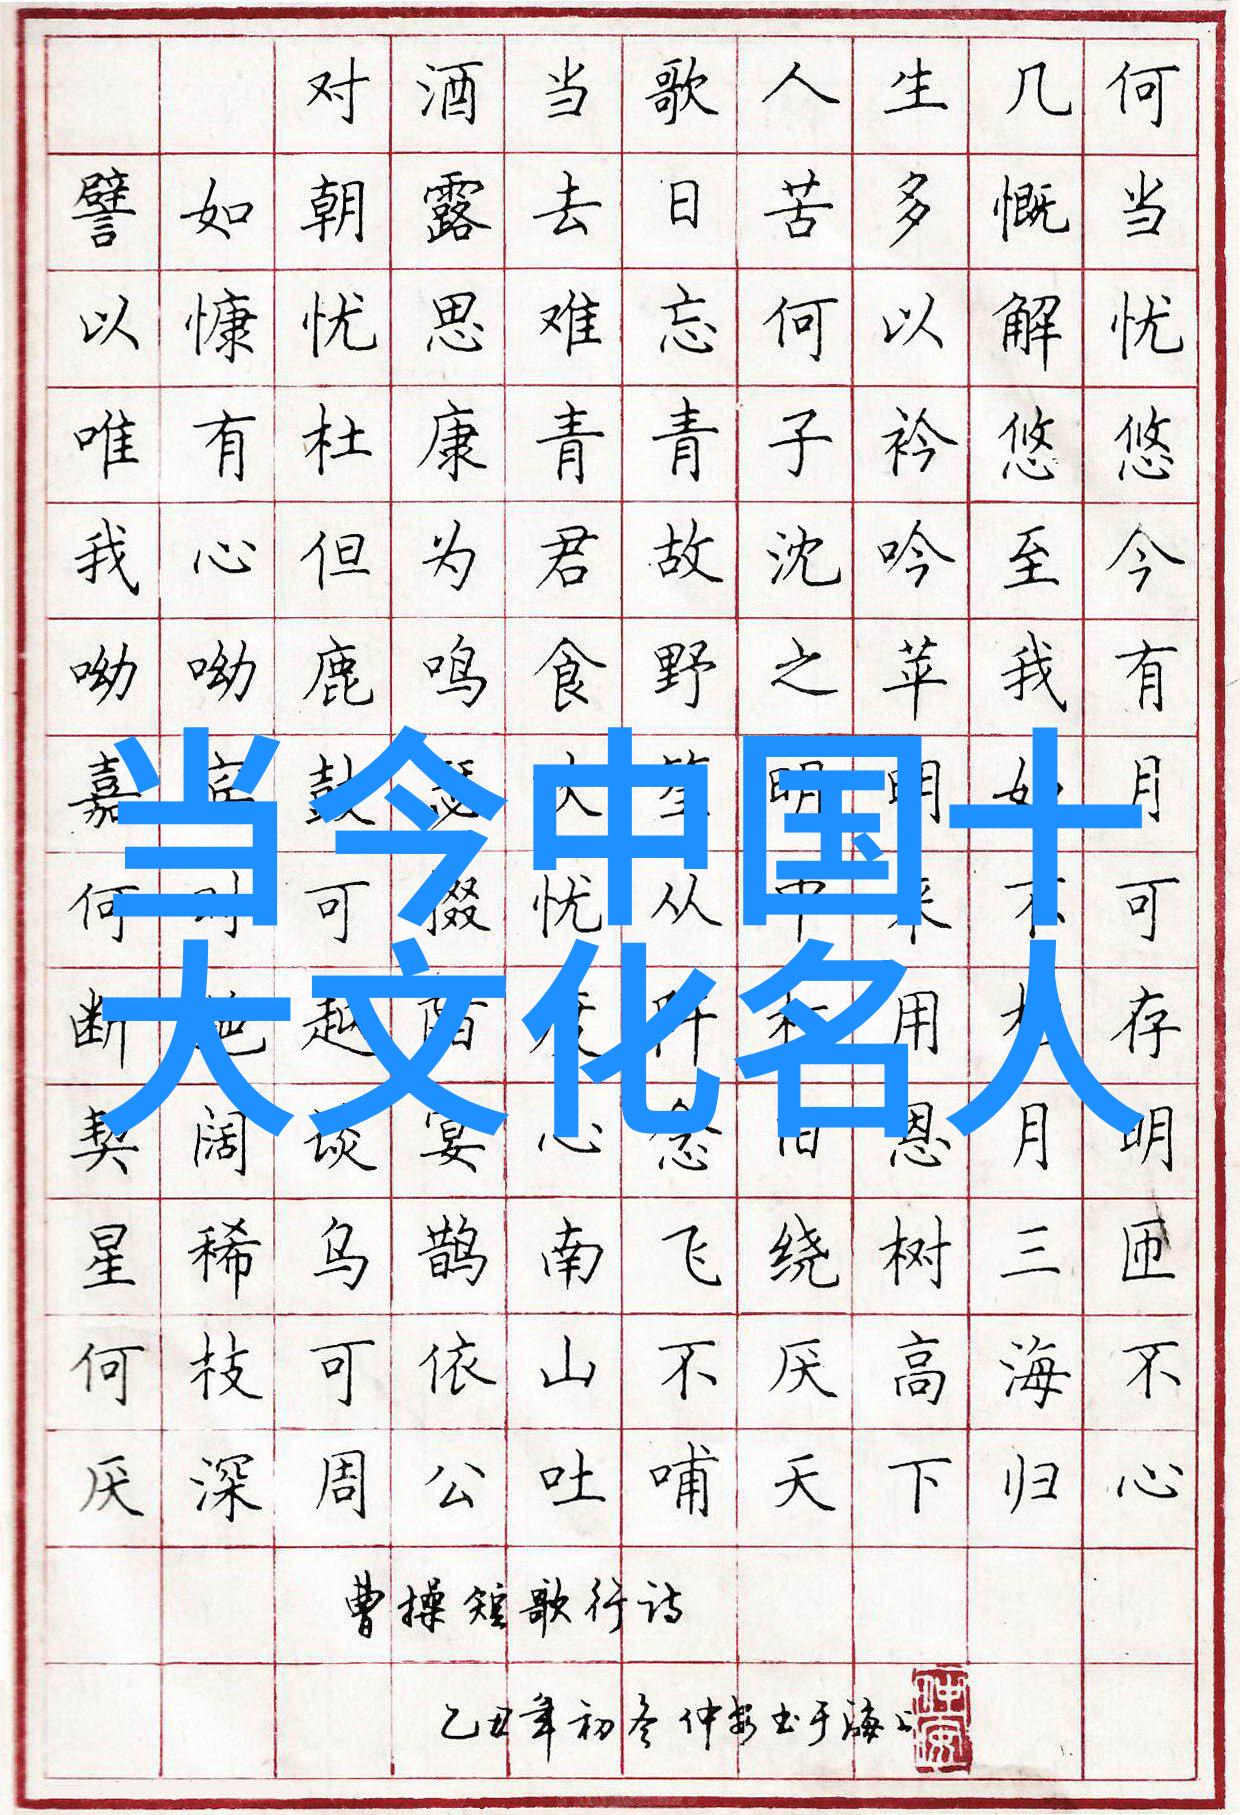 对酒当歌人生几何
譬如朝露去日苦多慨当
以慷忧思难忘何以解忧
唯有杜康青青子衿悠悠
我心但为君故沈吟至今
呦呦鹿鸣食野之苹我有
嘉宾鼓瑟吹笙明明如月
何时可掇忧从中来不可
断绝越陌度阡枉用相存
契阔谈宴心念旧恩月明
星稀乌鹊南飞绕树三匝
何枝可依山不厌高海不
厌深周公吐哺天下归心
当今中国十
大文化名人
曹操短歌行诗
乙丑年初冬仲安书于海上
仲安